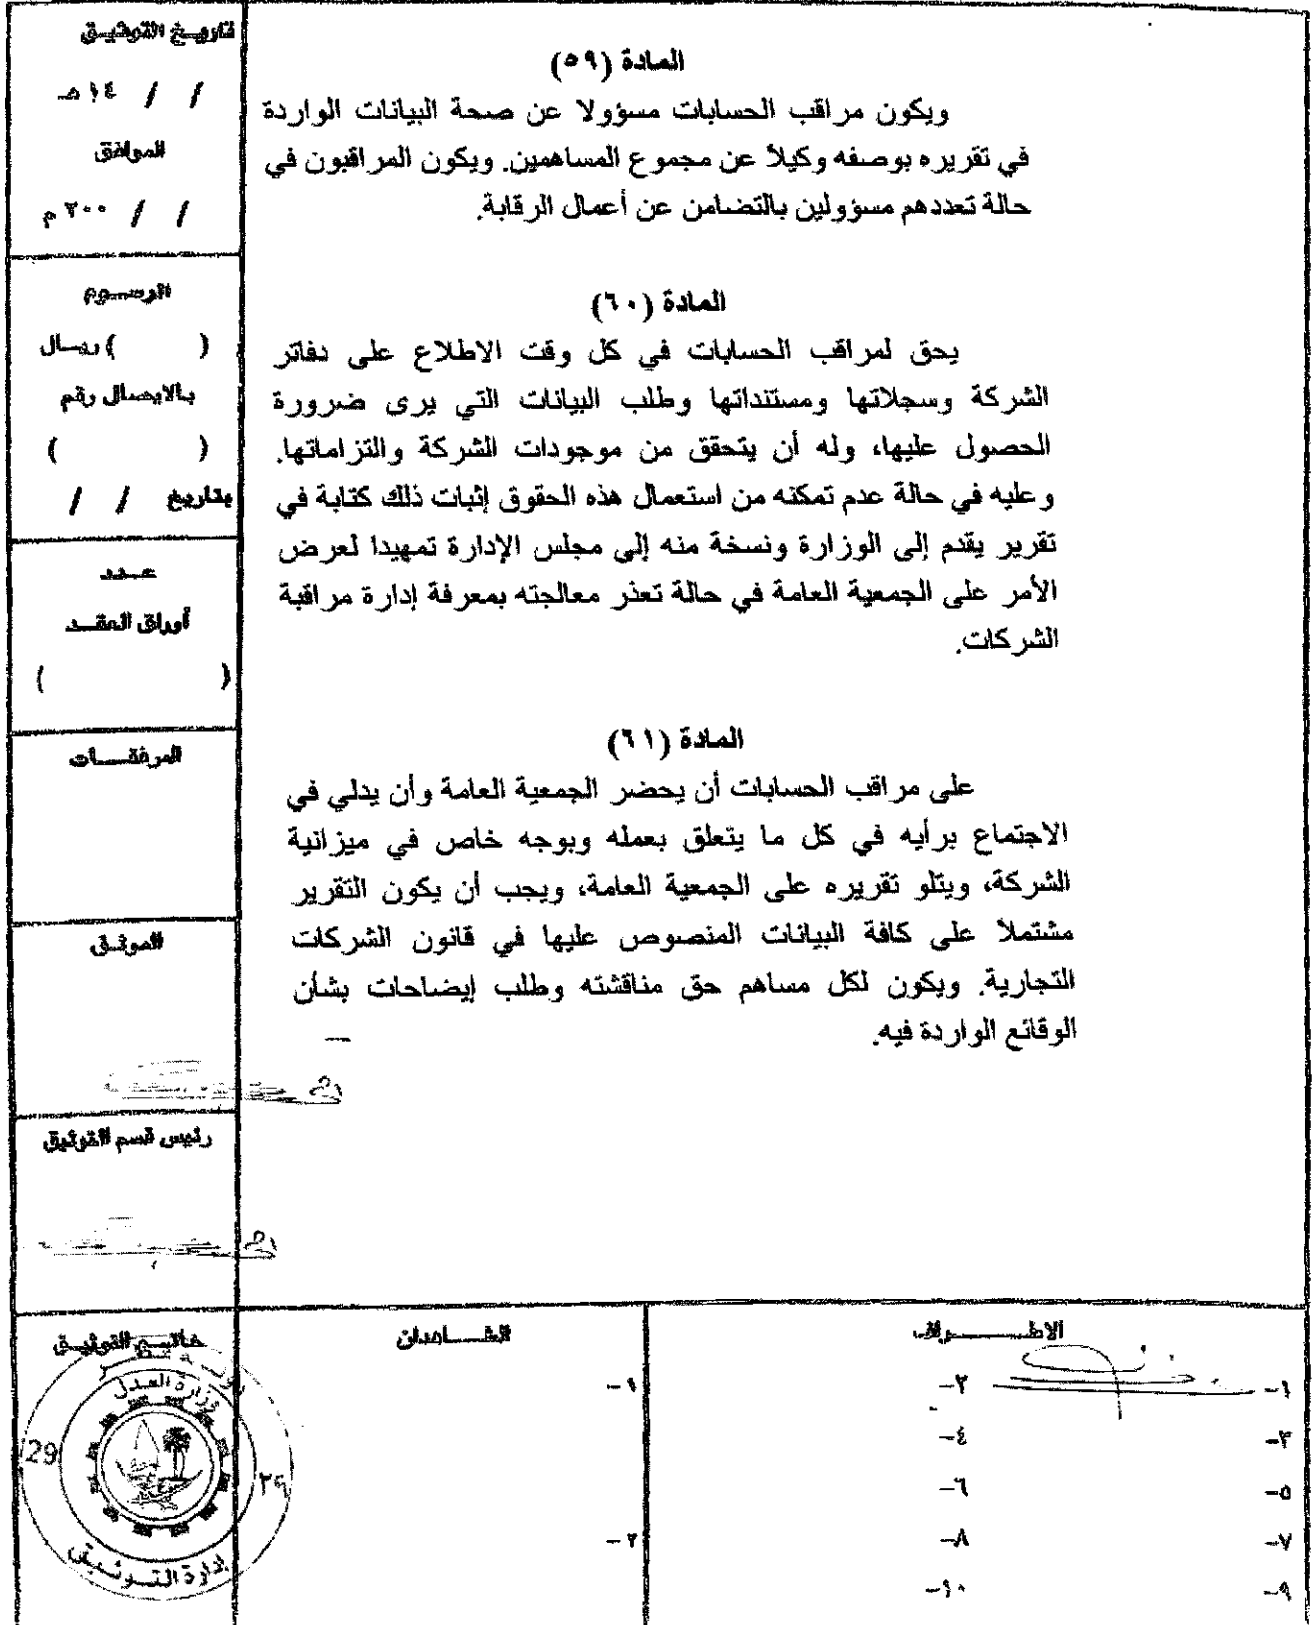 المادة (٥٩)
ويكون مراقب الحسابات مسؤولا عن صحة البيانات الواردة
في تقريره بوصفه وكيلاً عن مجموع المساهمين. ويكون المراقبون في
حالة تعددهم مسؤولين بالتضامن عن أعمال الرقابة.
المادة (٦٠)
يحق لمراقب الحسابات في كل وقت الاطلاع على دفاتر
الشركة وسجلاتها ومستنداتها وطلب البيانات التي يرى ضرورة
الحصول عليها، وله أن يتحقق من موجودات الشركة والتزاماتها.
وعليه في حالة عدم تمكنه من استعمال هذه الحقوق إثبات ذلك كتابة في
تقرير يقدم إلى الوزارة ونسخة منه إلى مجلس الإدارة تمهيدا لعرض
الأمر على الجمعية العامة في حالة تعذر معالجته بمعرفة إدارة مراقبة
الشركات.
المادة (٦١)
على مراقب الحسابات أن يحضر الجمعية العامة وأن يدلي في
الاجتماع برأيه في كل ما يتعلق بعمله وبوجه خاص في ميزانية
الشركة، ويتلو تقريره على الجمعية العامة، ويجب أن يكون التقرير
مشتملا على كافة البيانات المنصوص عليها في قانون الشركات
التجارية. ويكون لكل مساهم حق مناقشته وطلب إيضاحات بشأن
الوقائع الواردة فيه.
تاريخ التوثيق
/ / ١٤ هـ
الموافق
/ / ٢٠٠ م
الرسوم
( ) ريال
بالايصال رقم
( )
بتاريخ / /
عدد
أوراق العقد
( )
المرفقات
الموثق
رئيس قسم التوثيق
الاطراف
١- ٢-
٣- ٤-
٥- ٦-
٧- ٨-
٩- ١٠-
الشاهدان
١-
٢-
خاتم التوثيق
دولة قطر
وزارة العدل
29 ٢٩
إدارة التوثيق